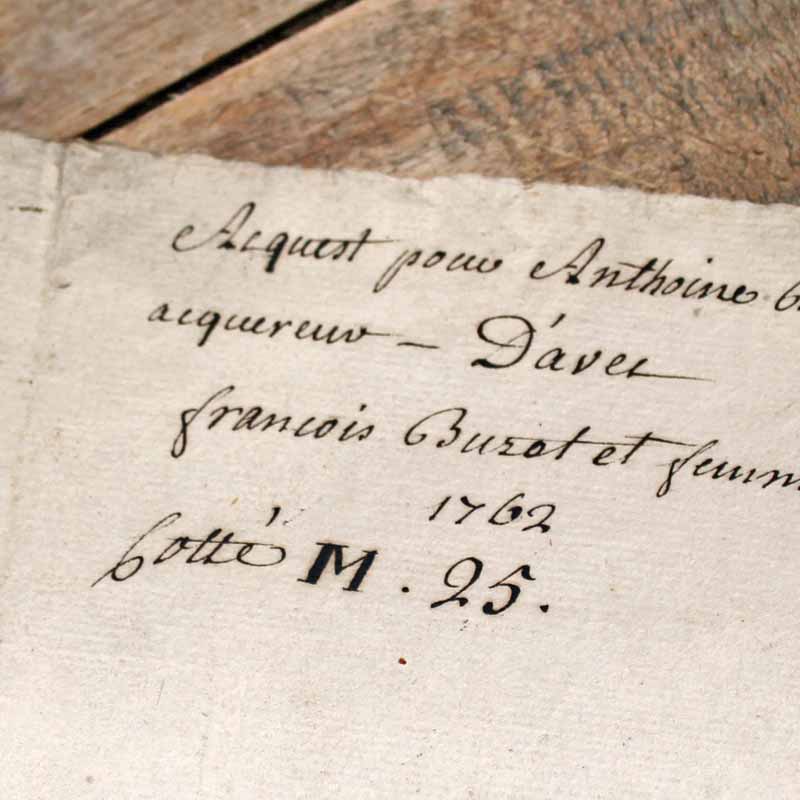 Acquest pour Anthoine
acquereur – D'avec
francois Buzot et femm
1762
Cotté M . 25.